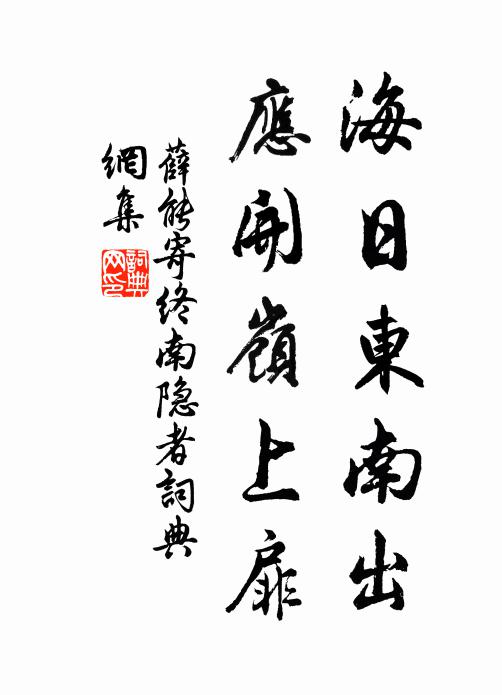 海日東南出
應開嶺上扉
薛能寄终南隐者詞典
網集
詞典网印